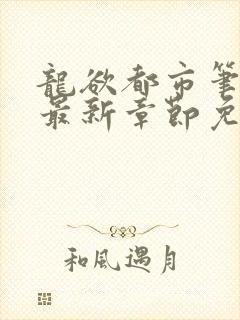 龍欲都市筆
最新章節免
和風遇月